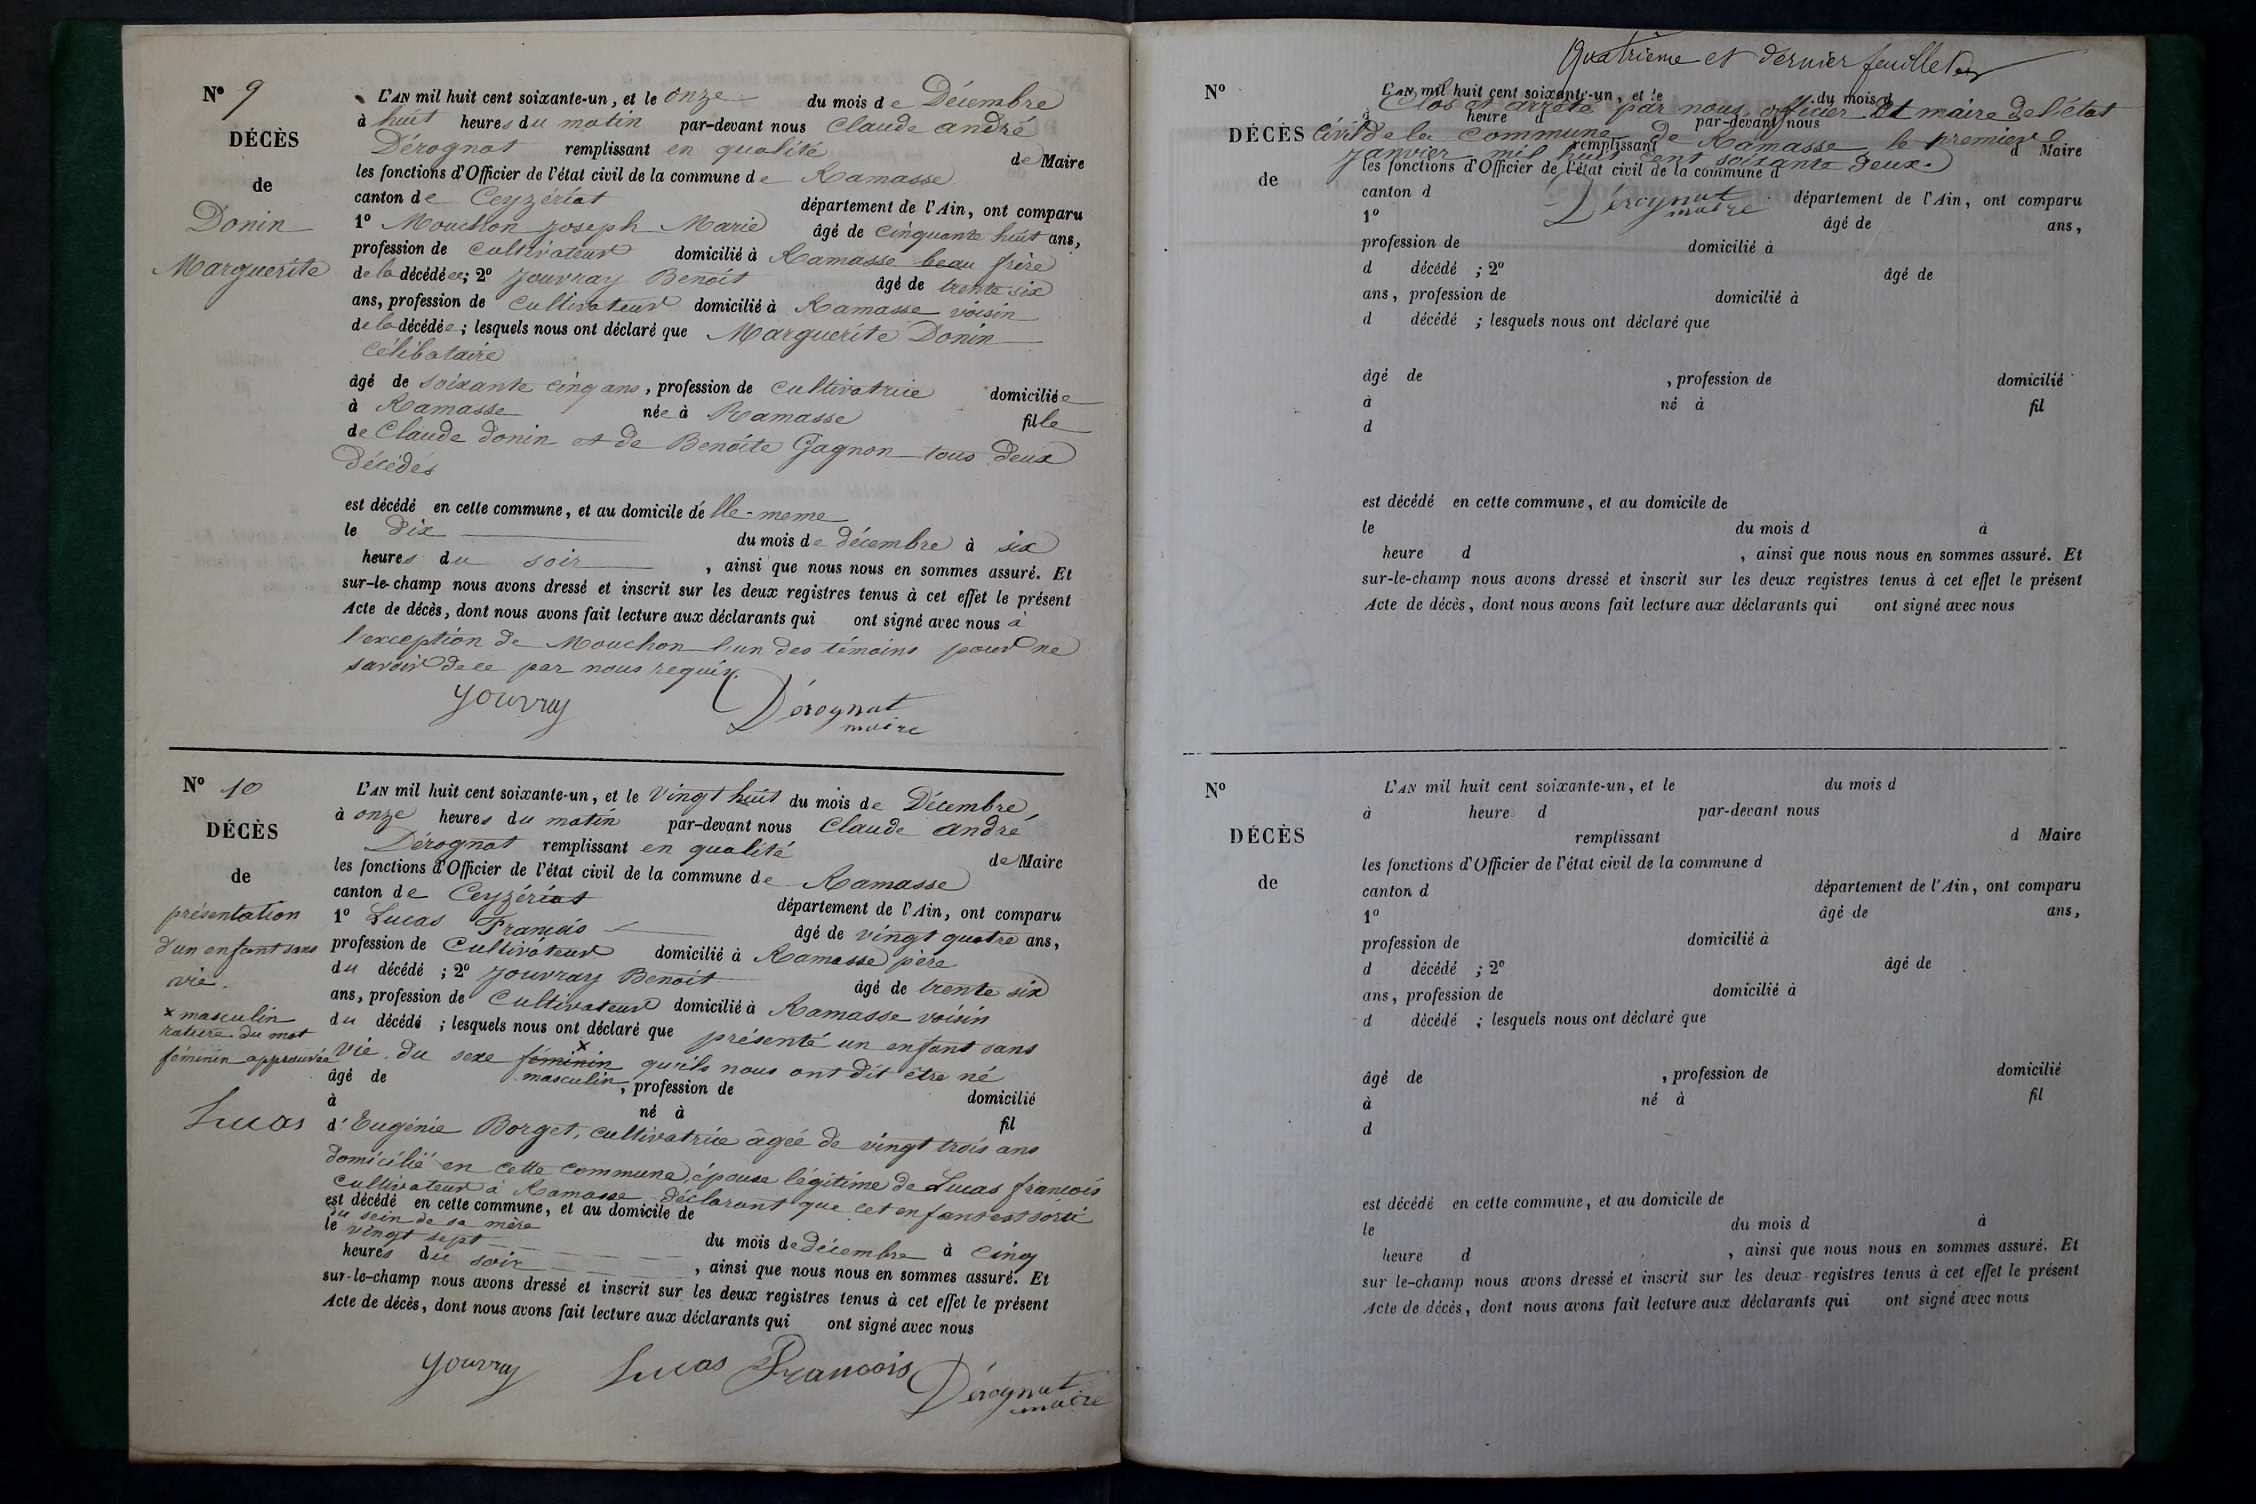 Nº 9
DÉCÈS
de
Donin
Marguerite
L'AN mil huit cent soixante-un, et le onze du mois de Décembre
à huit heures du matin par-devant nous Claude andré
Dérognat remplissant en qualité de Maire
les fonctions d'Officier de l'état civil de la commune de Ramasse
canton de Ceyzériat département de l'Ain, ont comparu
1º Mouchon Joseph Marie âgé de cinquante huit ans,
profession de Cultivateur domicilié à Ramasse beau frère
de la décédée; 2º Jouvray Benoit âgé de trente six
ans, profession de Cultivateur domicilié à Ramasse voisin
de la décédée; lesquels nous ont déclaré que Marguerite Donin
célibataire
âgé de soixante cinq ans, profession de cultivatrice domiciliée
à Ramasse née à Ramasse fille
de Claude donin et de Benoite Gagnon tous deux
décédés
est décédé en cette commune, et au domicile d'elle-meme
le dix du mois de décembre à six
heures du soir, ainsi que nous nous en sommes assuré. Et
sur-le-champ nous avons dressé et inscrit sur les deux registres tenus à cet effet le présent
Acte de décès, dont nous avons fait lecture aux déclarants qui ont signé avec nous à
l'exception de Mouchon l'un des témoins pour ne
savoir de ce par nous requis.
Jouvray Dérognat
maire
Nº 10
DÉCÈS
de
présentation
d'un enfant sans
vie.
x masculin
rature du mot
féminin approuvée
Lucas
L'AN mil huit cent soixante-un, et le Vingt huit du mois de Décembre
à onze heures du matin par-devant nous Claude andré
Dérognat remplissant en qualité de Maire
les fonctions d'Officier de l'état civil de la commune de Ramasse
canton de Ceyzériat département de l'Ain, ont comparu
1º Lucas François âgé de vingt quatre ans,
profession de Cultivateur domicilié à Ramasse père
du décédé ; 2º Jouvray Benoit âgé de trente six
ans, profession de Cultivateur domicilié à Ramasse voisin
du décédé ; lesquels nous ont déclaré que présenté un enfant sans
vie du sexe féminin x qu'ils nous ont dit être né
âgé de masculin, profession de domicilié
à né à fil
d'Eugénie Borget, cultivatrice âgée de vingt trois ans
domicilié en cette commune, épouse légitime de Lucas françois
cultivateur à Ramasse déclarant que cet enfant est sorti
est décédé en cette commune, et au domicile de
du sein de sa mère
le vingt sept du mois de décembre à cinq
heures du soir, ainsi que nous nous en sommes assuré. Et
sur-le-champ nous avons dressé et inscrit sur les deux registres tenus à cet effet le présent
Acte de décès, dont nous avons fait lecture aux déclarants qui ont signé avec nous
Jouvray Lucas François Dérognat
maire
Quatrième et dernier feuillet
Nº
DÉCÈS
de
L'AN mil huit cent soixante-un, et le du mois d
Clos et arrêté par nous officier et maire de l'état
à heure d par-devant nous
civil de la Commune de Ramasse le premier
remplissant d Maire
Janvier mil huit cent soixante deux.
les fonctions d'Officier de l'état civil de la commune d
canton d département de l'Ain, ont comparu
Dérognat
maire
1º âgé de ans,
profession de domicilié à
d décédé ; 2º âgé de
ans, profession de domicilié à
d décédé ; lesquels nous ont déclaré que
âgé de , profession de domicilié
à né à fil
d
est décédé en cette commune, et au domicile de
le du mois d à
heure d , ainsi que nous nous en sommes assuré. Et
sur-le-champ nous avons dressé et inscrit sur les deux registres tenus à cet effet le présent
Acte de décès, dont nous avons fait lecture aux déclarants qui ont signé avec nous
Nº
DÉCÈS
de
L'AN mil huit cent soixante-un, et le du mois d
à heure d par-devant nous
remplissant d Maire
les fonctions d'Officier de l'état civil de la commune d
canton d département de l'Ain, ont comparu
1º âgé de ans,
profession de domicilié à
d décédé ; 2º âgé de
ans, profession de domicilié à
d décédé ; lesquels nous ont déclaré que
âgé de , profession de domicilié
à né à fil
d
est décédé en cette commune, et au domicile de
le du mois d à
heure d , ainsi que nous nous en sommes assuré. Et
sur le-champ nous avons dressé et inscrit sur les deux registres tenus à cet effet le présent
Acte de décès, dont nous avons fait lecture aux déclarants qui ont signé avec nous